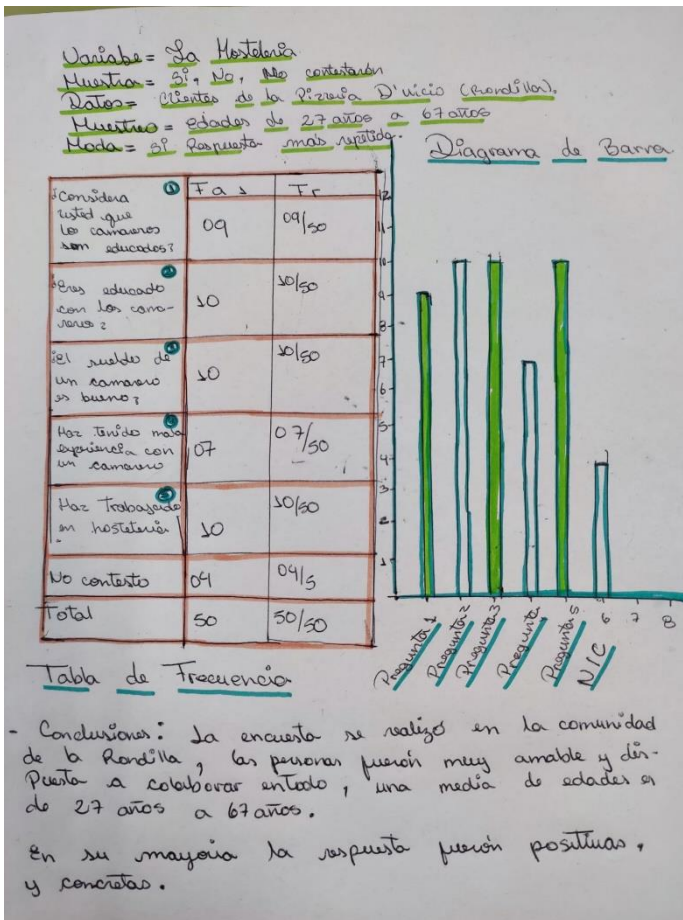 Variabe = La Hosteleria
Muestra = Si, No, No contestarón
Datos = Clientes de la Pizzeria D'uicio (Rondilla).
Muestreo = edades de 27 años a 67 años
Moda = si Respuesta mas repetida.
Diagrama de Barra
¿Considera usted que los camareros son educados?
1
Fas
Fr
09
09/50
¿Eres educado con los camareros?
2
10
10/50
¿El sueldo de un camarero es bueno?
3
10
10/50
Haz tenido mala experiencia con un camarero
07
07/50
Haz Trabajado en hosteleria
10
10/50
No contesto
04
04/5
Total
50
50/50
12
11
10
9
8
7
6
5
4
3
2
1
Pregunta 1
Pregunta 2
Pregunta 3
Pregunta
Pregunta 5
N/C
6
7
8
Tabla de Frecuencia
- Conclusiones: La encuesta se realizó en la comunidad
de la Rondilla, las personas fuerón muy amable y dis-
Puesta a colaborar entodo, una media de edades es
de 27 años a 67 años.
En su mayoria la respuesta fuerón positivas,
y concretas.